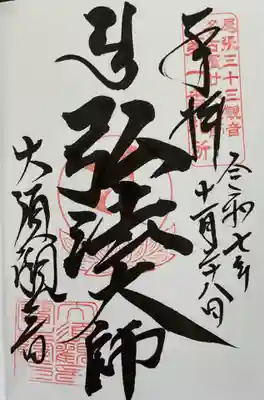 尾張三十三観音
奉拝
令和七年
十一月二十八日
弘法大師
大須観音